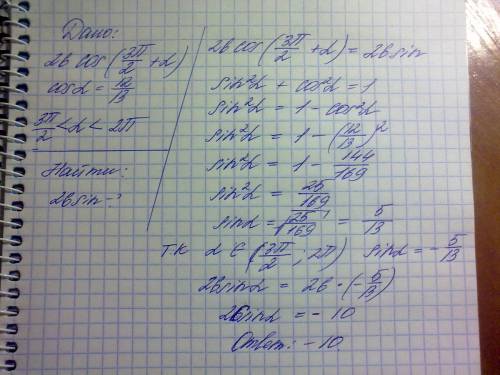 Дано:
26 cos(3π/2 + α)
cosα = 12/13
3π/2 < α < 2π
Найти:
26 sin - ?
26 cos(3π/2 + α) = 26 sin
sin²α + cos²α = 1
sin²α = 1 - cos²α
sin²α = 1 - (12/13)²
sin²α = 1 - 144/169
sin²α = 25/169
sinα = √25/169 = 5/13
т.к α ∈ (3π/2 ; 2π) sinα = - 5/13
26 sinα = 26 · (- 5/13)
26 sinα = - 10
Ответ: - 10.